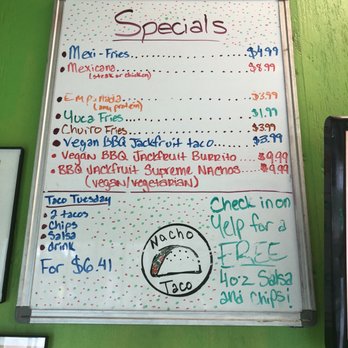 Specials
• Mexi-Fries............$4.99
• Mexicana............$8.99
(steak or chicken)
• Empanada............$3.99
(any protein)
• Yuca Fries............$1.99
• Churro Fries............$3.99
• Vegan BBQ Jackfruit taco....$3.99
• Vegan BBQ Jackfruit Burrito....$9.99
• BBQ Jackfruit Supreme Nachos....$9.99
(vegan/vegetarian)
Taco Tuesday
• 2 tacos
• chips
• Salsa
• drink
For $6.41
Nacho
Taco
Check in on
Yelp for a
FREE
4oz Salsa
and chips!